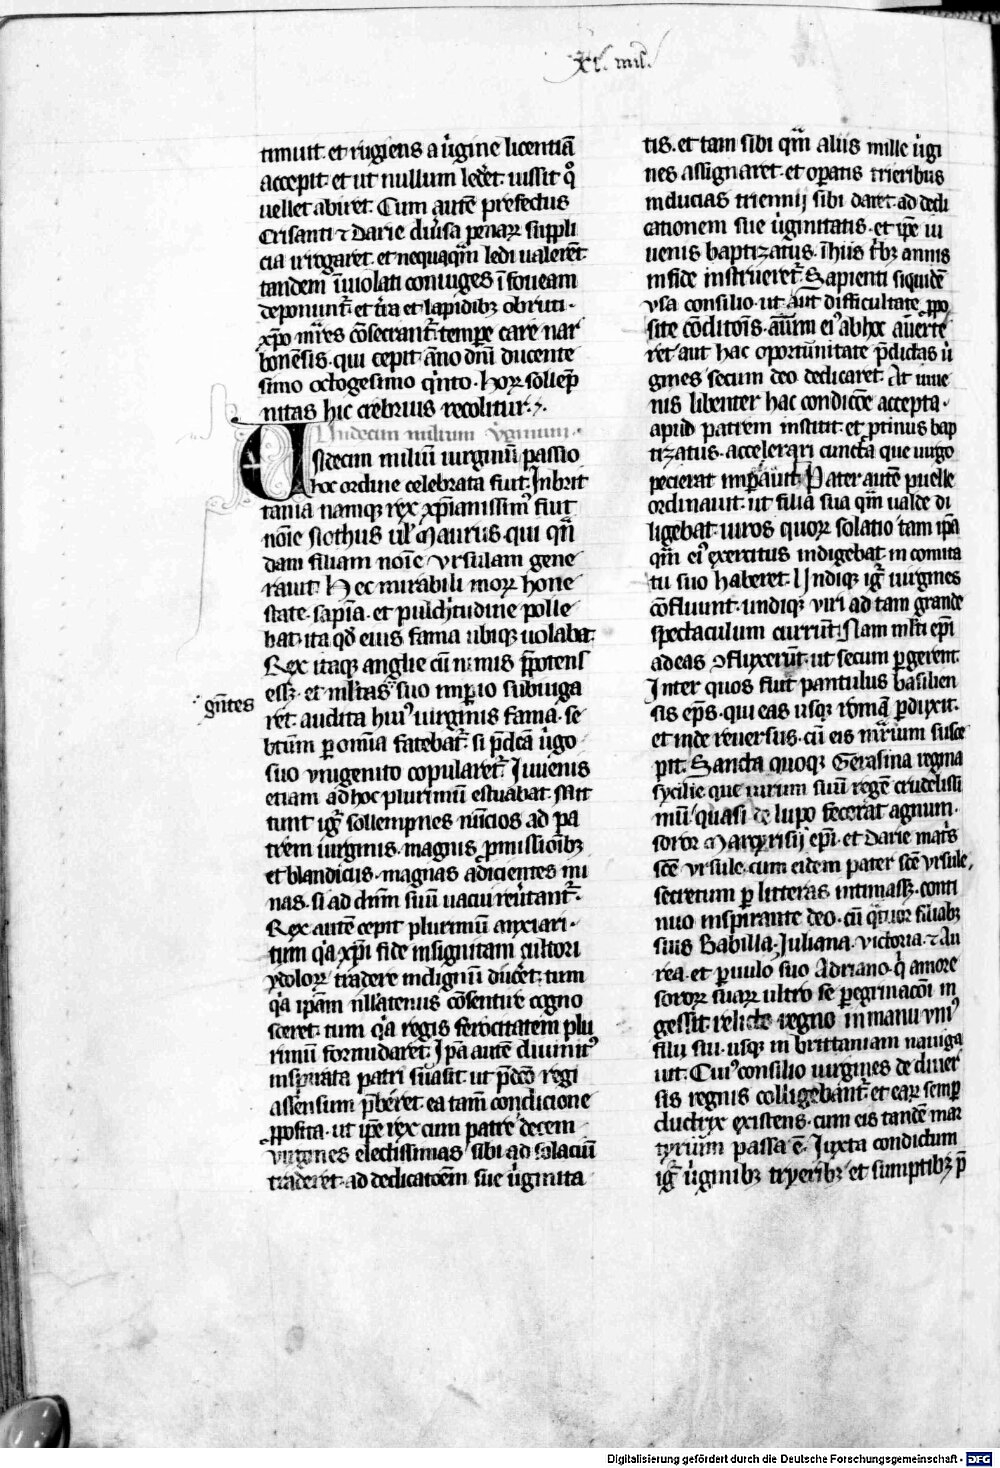 xi. mil.
timuit. et rugiens a ũgine licentiã
accepit. et ut nullum lederet. iussit qͦ
uellet abiret. Cum autẽ prefectus
Crisanti ⁊ Darie diu̾sa penaꝝ suppli
cia irrogaret. et nequaqͣm ledi ualerẽt.
tandem ĩuiolati coniuges ĩ foueam
deponunt᷑. et t̾ra et lapidibꝫ obruti.
xp̃o mr̃es cõsecrant᷑. tempe care nar
bonẽsis. qui cepit ãno dñi ducente
simo octogesimo qͥnto. Hoꝝ sollẽp
nitas hic crebrius recolitur.
Undecim milium v̾ginum.
Undecim miliũ uirginũ passio
hoc ordine celebrata fuit. In brit
tania namqꝫ rex xp̃ianissimꝰ fuit
noĩe Nothus ul̾ Maurus. qui qñ
dam filiam noĩe Vrsulam gene
rauit. Hec mirabili moꝝ hone
state. sapĩa. et pulchͥtudine polle
bat. ita qd̾ eius fama ubiqꝫ uolabat.
Rex itaqꝫ anglie cũ nimis p̃potens
eẽt. et ml̾tas suo impio subiuga
gñtes
ret. audita huiꝰ uirginis fama. se
btũm ꝑ omĩa fatebat᷑. si p̃dc̃a ũgo
suo vnigenito copularet᷑. Iuuenis
etiam ad hoc plurimũ estuabat. Mit
tunt ig̾ sollempnes nũcios ad pa
trem uirginis. magnis ꝓmissiõibꝫ
et blandiciis. magnas adicientes mi
nas. si ad dñm suũ uacui reũtant᷑.
Rex autẽ cepit plurimũ anxiari.
tum qͥa xp̃i fide insignitam cultori
ydoloꝝ tradere indignũ ducet. tum
qͥa ip̃am nllatenus cõsentire cogno
sceret. tum qͥa regis ferocitatem plu
rimũ formidaret. Ip̃a autẽ diuinitꝰ
inspirata patri suasit. ut p̃dc̃o regi
assensum p̃beret. ea tam̃ condicione
ꝓposita. ut ip̃e rex cum patre decem
virgines electissimas sibi ad solaciũ
traderet. ad dedicatõem sue ũginita
tis. et tam sibi qͣm aliis mille ũgi
nes assignaret. et opatis trieribus
inducias triennij sibi daret. ad dedi
cationem sue ũginitatis. et ip̃e iu
uenis baptizatus. ĩ hiis tͥbꝫ annis
in fide instrueret᷑. Sapienti siquidẽ
vsa consilio. ut aut difficultate ꝓpo
site cõditõis. aĩm eiꝰ ab hoc aũerte
ret. aut hac oportunitate p̃dictas ũ
gines secum deo dedicaret. At iuue
nis libenter hac condicõe accepta.
apud patrem institit. et ꝓtinus bap
tizatus. accelerari cuncta que uirgo
pecierat imꝑauit. Pater autẽ puelle
ordinauit. ut filia sua qͣm ualde di
ligebat. uiros quoꝝ solatio tam ip̃a
qͣm eiꝰ exercitus indigebat. in comita
tu suo haberet. Undiqꝫ ig̾ uirgines
cõfluunt. undiqꝫ viri ad tam grande
spectaculum currũt. Nam ml̾ti ep̃i
ad eas ꝯfluxerũt. ut secum ꝑgerent.
Inter quos fuit pantulus basilien
sis ep̃s. qui eas usqꝫ romã ꝑduxit.
et inde reuersus. cũ eis mͣrium susce
pit. Sancta quoqꝫ Gerasina regina
sycilie que uirum suũ regẽ crudelissi
mũ quasi de lupo fecerat agnum.
soror Maryrisij ep̃i. et Darie mat̾s
sc̃e vrsule. cum eidem pater sc̃e vrsule,
secretum ꝑ litteras intimasꝫ. conti
nuo inspirante deo. cũ qͣtuor filiabꝫ
suis Babilla. Juliana. Victoria. ⁊ Au
rea. et ꝑuulo suo Adriano. qͥ amore
soroꝝ suaꝝ ultro se peregrinacõi in
gessit. relicto regno in manu vniꝰ
filij sui. usqꝫ in brittaniam nauiga
uit. Cuiꝰ consilio uirgines de diuer
sis regnis colligebãnt᷑. et eaꝝ semꝑ
ductryx existens. cum eis tandẽ mar
tyrium passa ẽ. Iuxta condictum
ig̾ ũginibꝫ tryeribꝫ et sumptibꝫ p̃